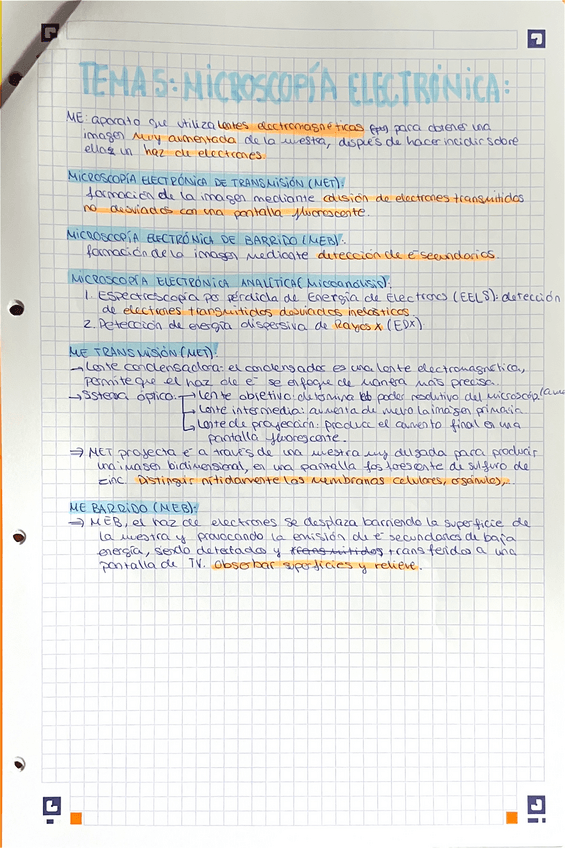 TEMA 5: MICROSCOPÍA ELECTRÓNICA:
ME: aparato que utiliza lentes electromagnéticas para obtener una
imagen muy aumentada de la muestra, después de hacer incidir sobre
ellas un haz de electrones.
MICROSCOPÍA ELECTRÓNICA DE TRANSMISIÓN (MET):
formación de la imagen mediante colisión de electrones transmitidos
no desviados con una pantalla fluorescente.
MICROSCOPÍA ELECTRÓNICA DE BARRIDO (MEB):
formación de la imagen mediante detección de e⁻ secundarios.
MICROSCOPÍA ELECTRÓNICA ANALÍTICA (Microanálisis):
1. Espectroscopía por pérdida de Energía de Electrones (EELS): detección
de electrones transmitidos desviados inelásticos.
2. Detección de energía dispersiva de Rayos X (EDX)
ME TRANSMISIÓN (MET):
→ Lente condensadora: el condensador es una lente electromagnética,
permite que el haz de e⁻ se enfoque de manera más precisa.
→ Sistema óptico: → Lente objetivo: determina el poder resolutivo del microscopio
→ Lente intermedia: aumenta de nuevo la imagen primaria.
→ Lente de proyección: produce el aumento final en una
pantalla fluorescente.
⇒ MET proyecta e⁻ a través de una muestra muy delgada para producir
una imagen bidimensional, en una pantalla fosforescente de sulfuro de
zinc. Distinguir nítidamente las membranas celulares, orgánulos,..
ME BARRIDO (MEB):
⇒ MEB, el haz de electrones se desplaza barriendo la superficie de
la muestra y provocando la emisión de e⁻ secundarios de baja
energía, siendo detectados y transmitidos transferidos a una
pantalla de TV. Observar superficies y relieve.